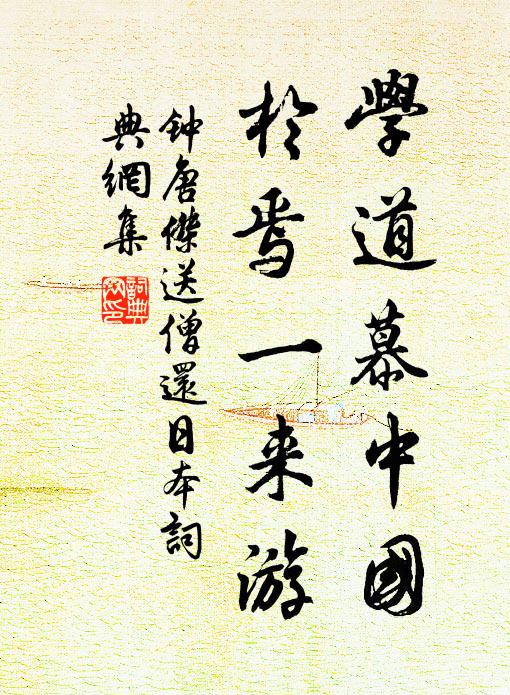 學道慕中國
於焉一来游
钟唐傑送僧還日本詞
典網集
詞典
网印